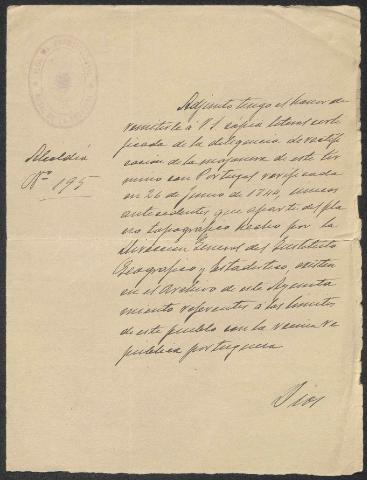 Alcaldía
Nº 195
Adjunto tengo el honor de
remitirle á V.S. copia literal certi
ficada de la diligencia de rectifi
cación de la mojonera de este tér
mino con Portugal verificada
en 26 de Junio de 1744, unicos
antecedentes que aparte del pla
no topográfico hecho por la
Dirección General del Instituto
Geográfico y Estadístico, existen
en el Archivo de este Ayunta
miento referentes á los límites
de este pueblo con la vecina re
pública portuguesa.
Dios